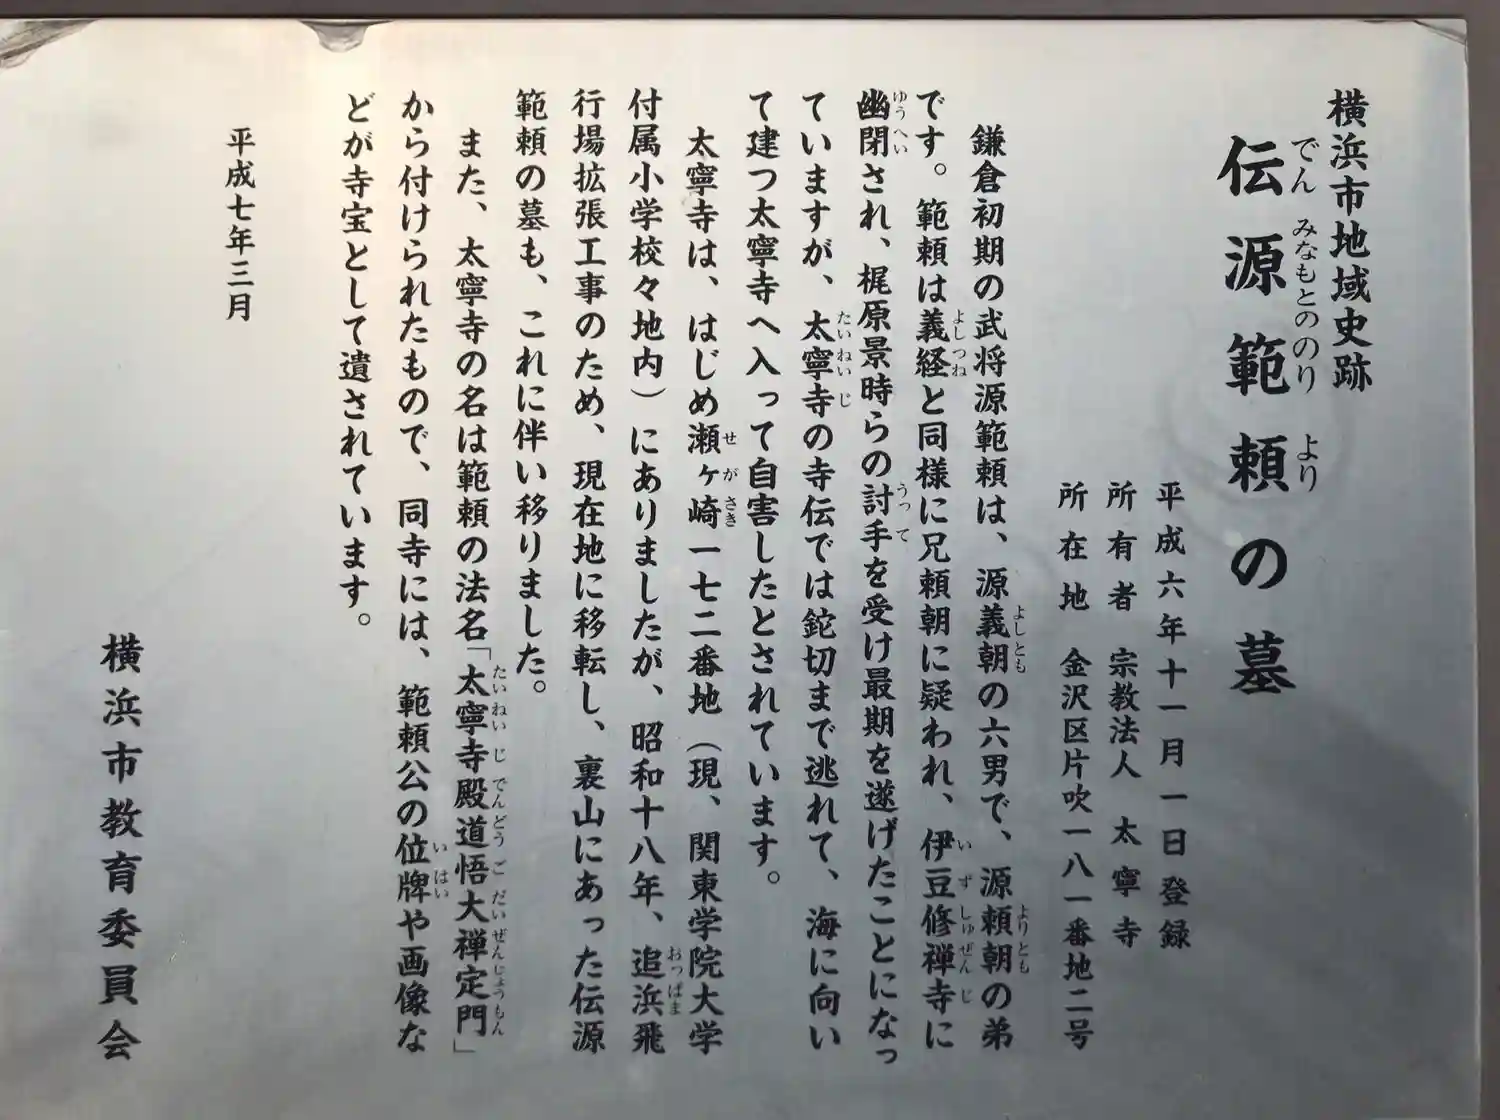 横浜市地域史跡
伝源範頼の墓
でんみなもとののりより
平成六年十一月一日登録
所有者 宗教法人 太寧寺
所在地 金沢区片吹一八一番地二号
鎌倉初期の武将源範頼は、源義朝の六男で、源頼朝の弟
よしとも よりとも
です。範頼は義経と同様に兄頼朝に疑われ、伊豆修禅寺に
よしつね いずしゅぜんじ
幽閉され、梶原景時らの討手を受け最期を遂げたことになっ
ゆうへい うって
ていますが、太寧寺の寺伝では鉈切まで逃れて、海に向い
たいねいじ
て建つ太寧寺へ入って自害したとされています。
太寧寺は、はじめ瀬ヶ崎一七二番地（現、関東学院大学
せがさき
付属小学校々地内）にありましたが、昭和十八年、追浜飛
おっぱま
行場拡張工事のため、現在地に移転し、裏山にあった伝源
範頼の墓も、これに伴い移りました。
また、太寧寺の名は範頼の法名「太寧寺殿道悟大禅定門」
たいねいじでんどうごだいぜんじょうもん
から付けられたもので、同寺には、範頼公の位牌や画像な
いはい
どが寺宝として遺されています。
平成七年三月
横浜市教育委員会